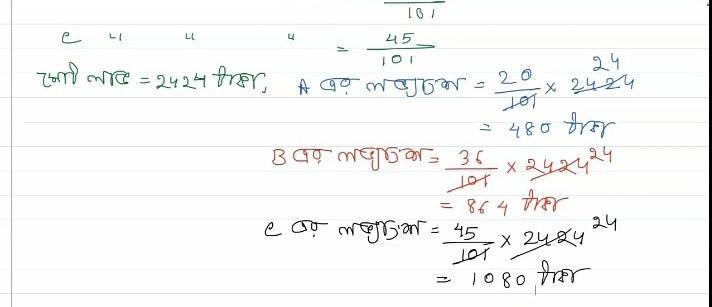 101
C " " " = 45/101
মোট লাভ = 2424 টাকা, A এর লভ্যাংশ = 20/101 × 2424 24
= 480 টাকা
B এর লভ্যাংশ = 36/101 × 2424 24
= 864 টাকা
C এর লভ্যাংশ = 45/101 × 2424 24
= 1080 টাকা